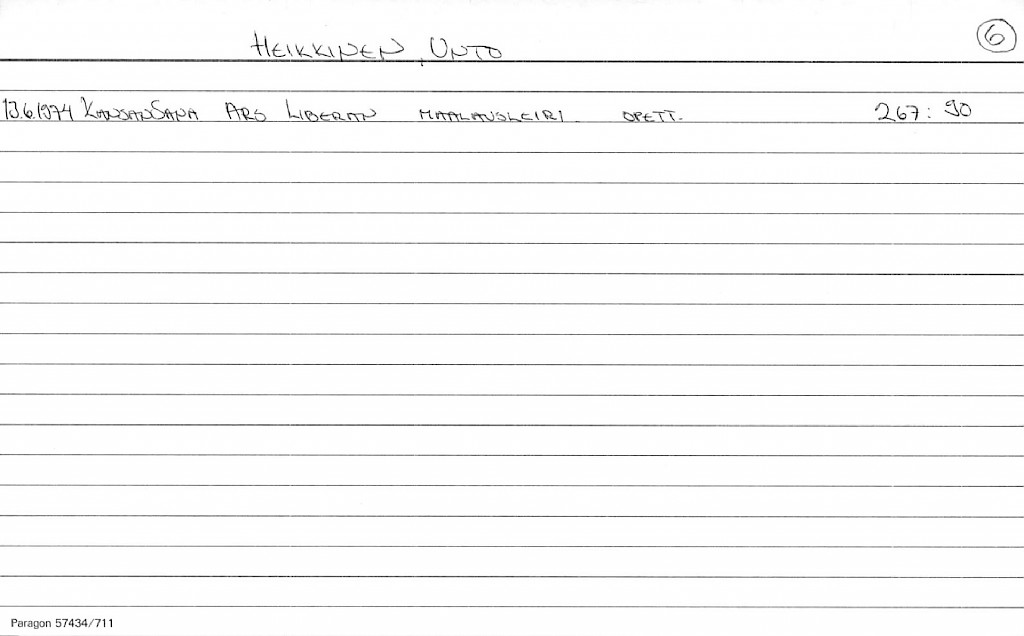 HEIKKINEN, UNTO
6
13.6.1974 KANSAN SANA ARS LIBERAN MAALAUSLEIRI OPETT. 267: 90
Paragon 57434/711